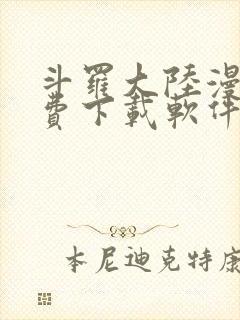 斗羅大陸漫
費下載軟件
本尼迪克特康